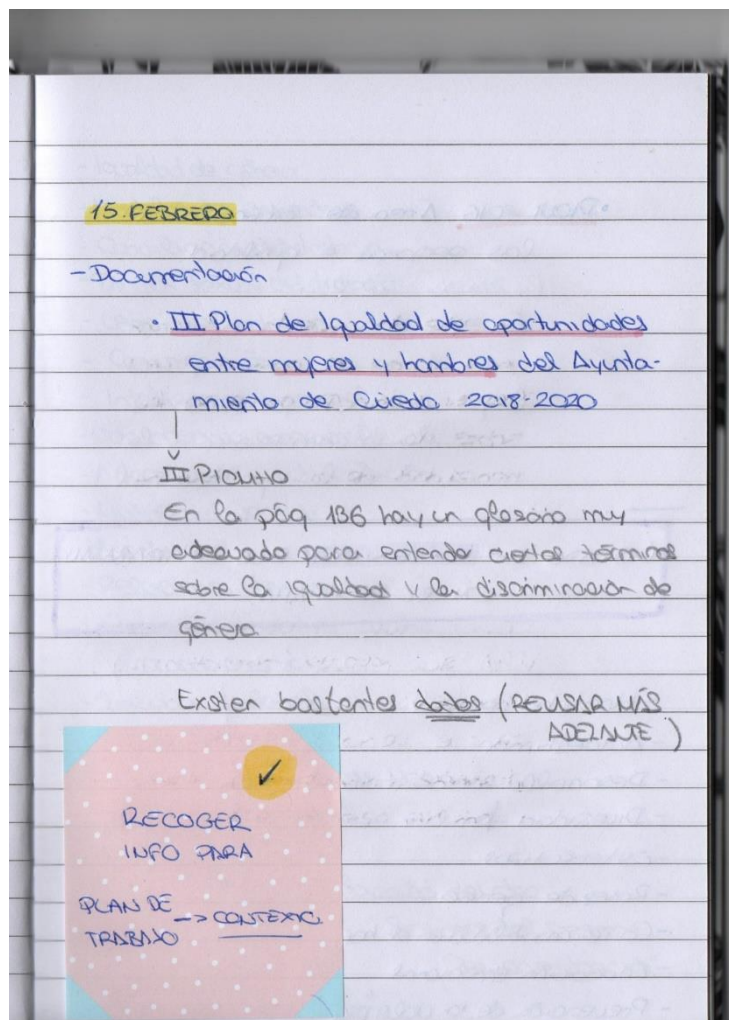 15. FEBRERO
- Documentación
• III Plan de Igualdad de oportunidades
entre mujeres y hombres del Ayunta-
miento de Oviedo 2018-2020
III PIOMHO
En la pág 136 hay un glosario muy
adecuado para entender ciertos términos
sobre la igualdad y la discriminación de
género
Existen bastantes datos (REVISAR MÁS
ADELANTE)
✓
RECOGER
INFO PARA
PLAN DE
TRABAJO -> CONTEXTO.